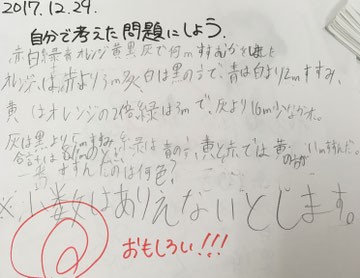 2017.12.29.
自分で考えた問題にしよう.
赤白緑青オレンジ黄黒灰で何mすすむか
オレンジは赤より3m多く白は黒の で、青は白より2mすすみ、
黄はオレンジの2倍緑は3mで、灰より16m少ない。
灰は黒より5mすすみ、
合計は 青の 黄と赤では黄の方が すすんだ。
一番すすんだのは何色?
※小数はありえないとします。
おもしろい!!!